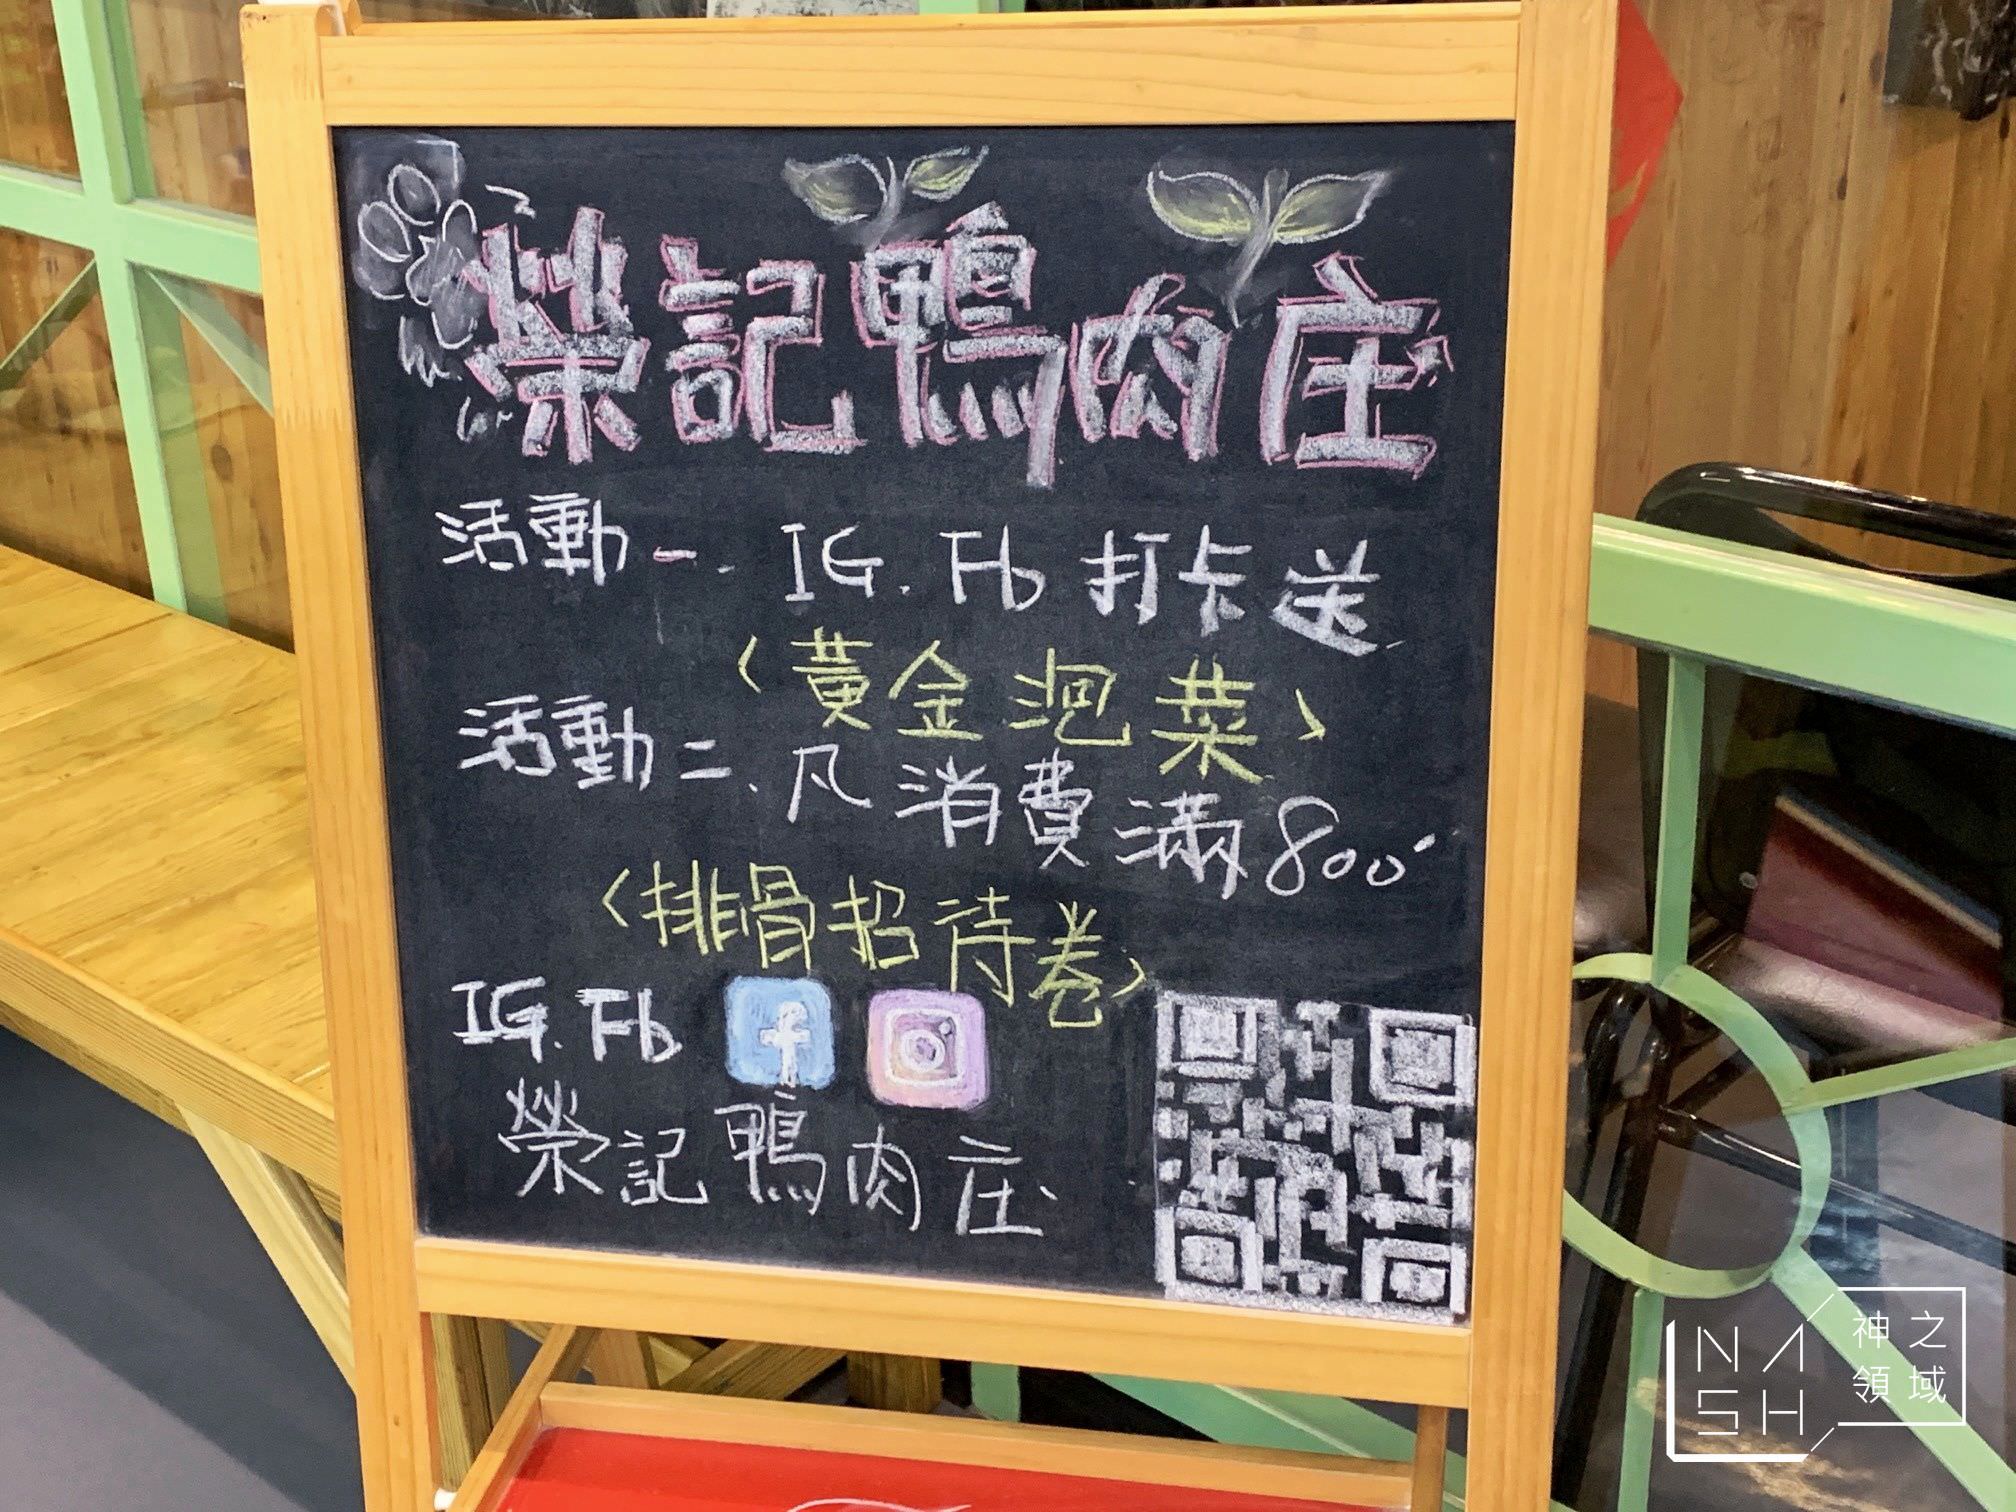 榮記鴨肉庄
活動一. IG. Fb 打卡送
〈黃金泡菜〉
活動二、凡消費滿800
〈排骨招待卷〉
IG. Fb
榮記鴨肉庄
NASH
神之
領域